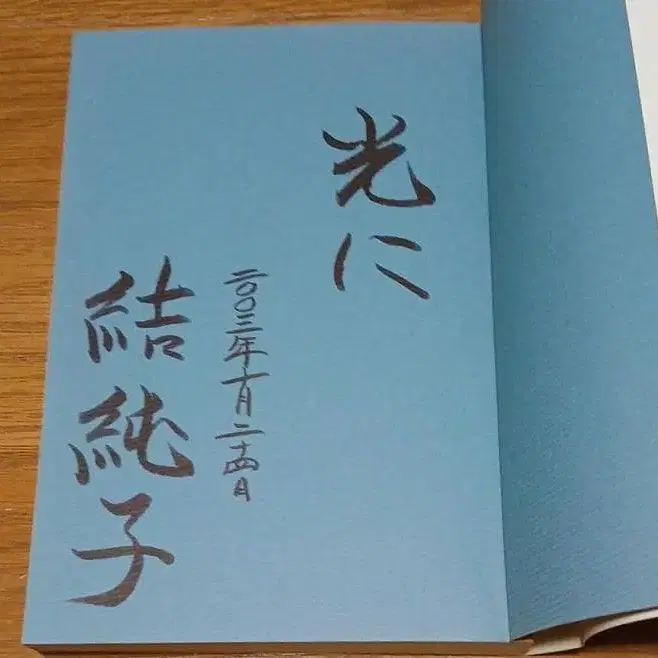 光に
二〇〇三年一月二十四日
結純子